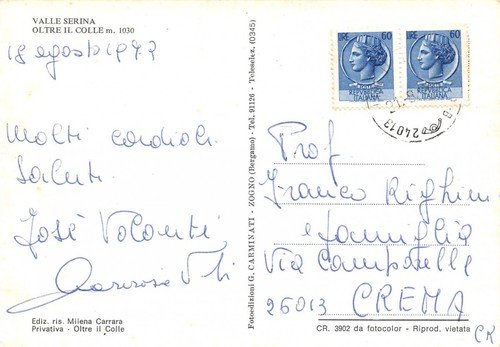 VALLE SERINA
OLTRE IL COLLE m. 1030
18 agosto 1973
Molti cordiali
Saluti
José Volonté
Ediz. ris. Milena Carrara
Privativa - Oltre Il Colle
Fotoedizioni G. CARMINATI - ZOGNO (Bergamo) - Tel. 91126 - Teleselez. (0345)
LIRE 60
REPUBBLICA
ITALIANA
LIRE 60
REPUBBLICA
ITALIANA
24013
Prof
Franco Righini
e famiglia
Via Campo
26013 CREMA
CR. 3902 da fotocolor - Riprod. vietata
CR